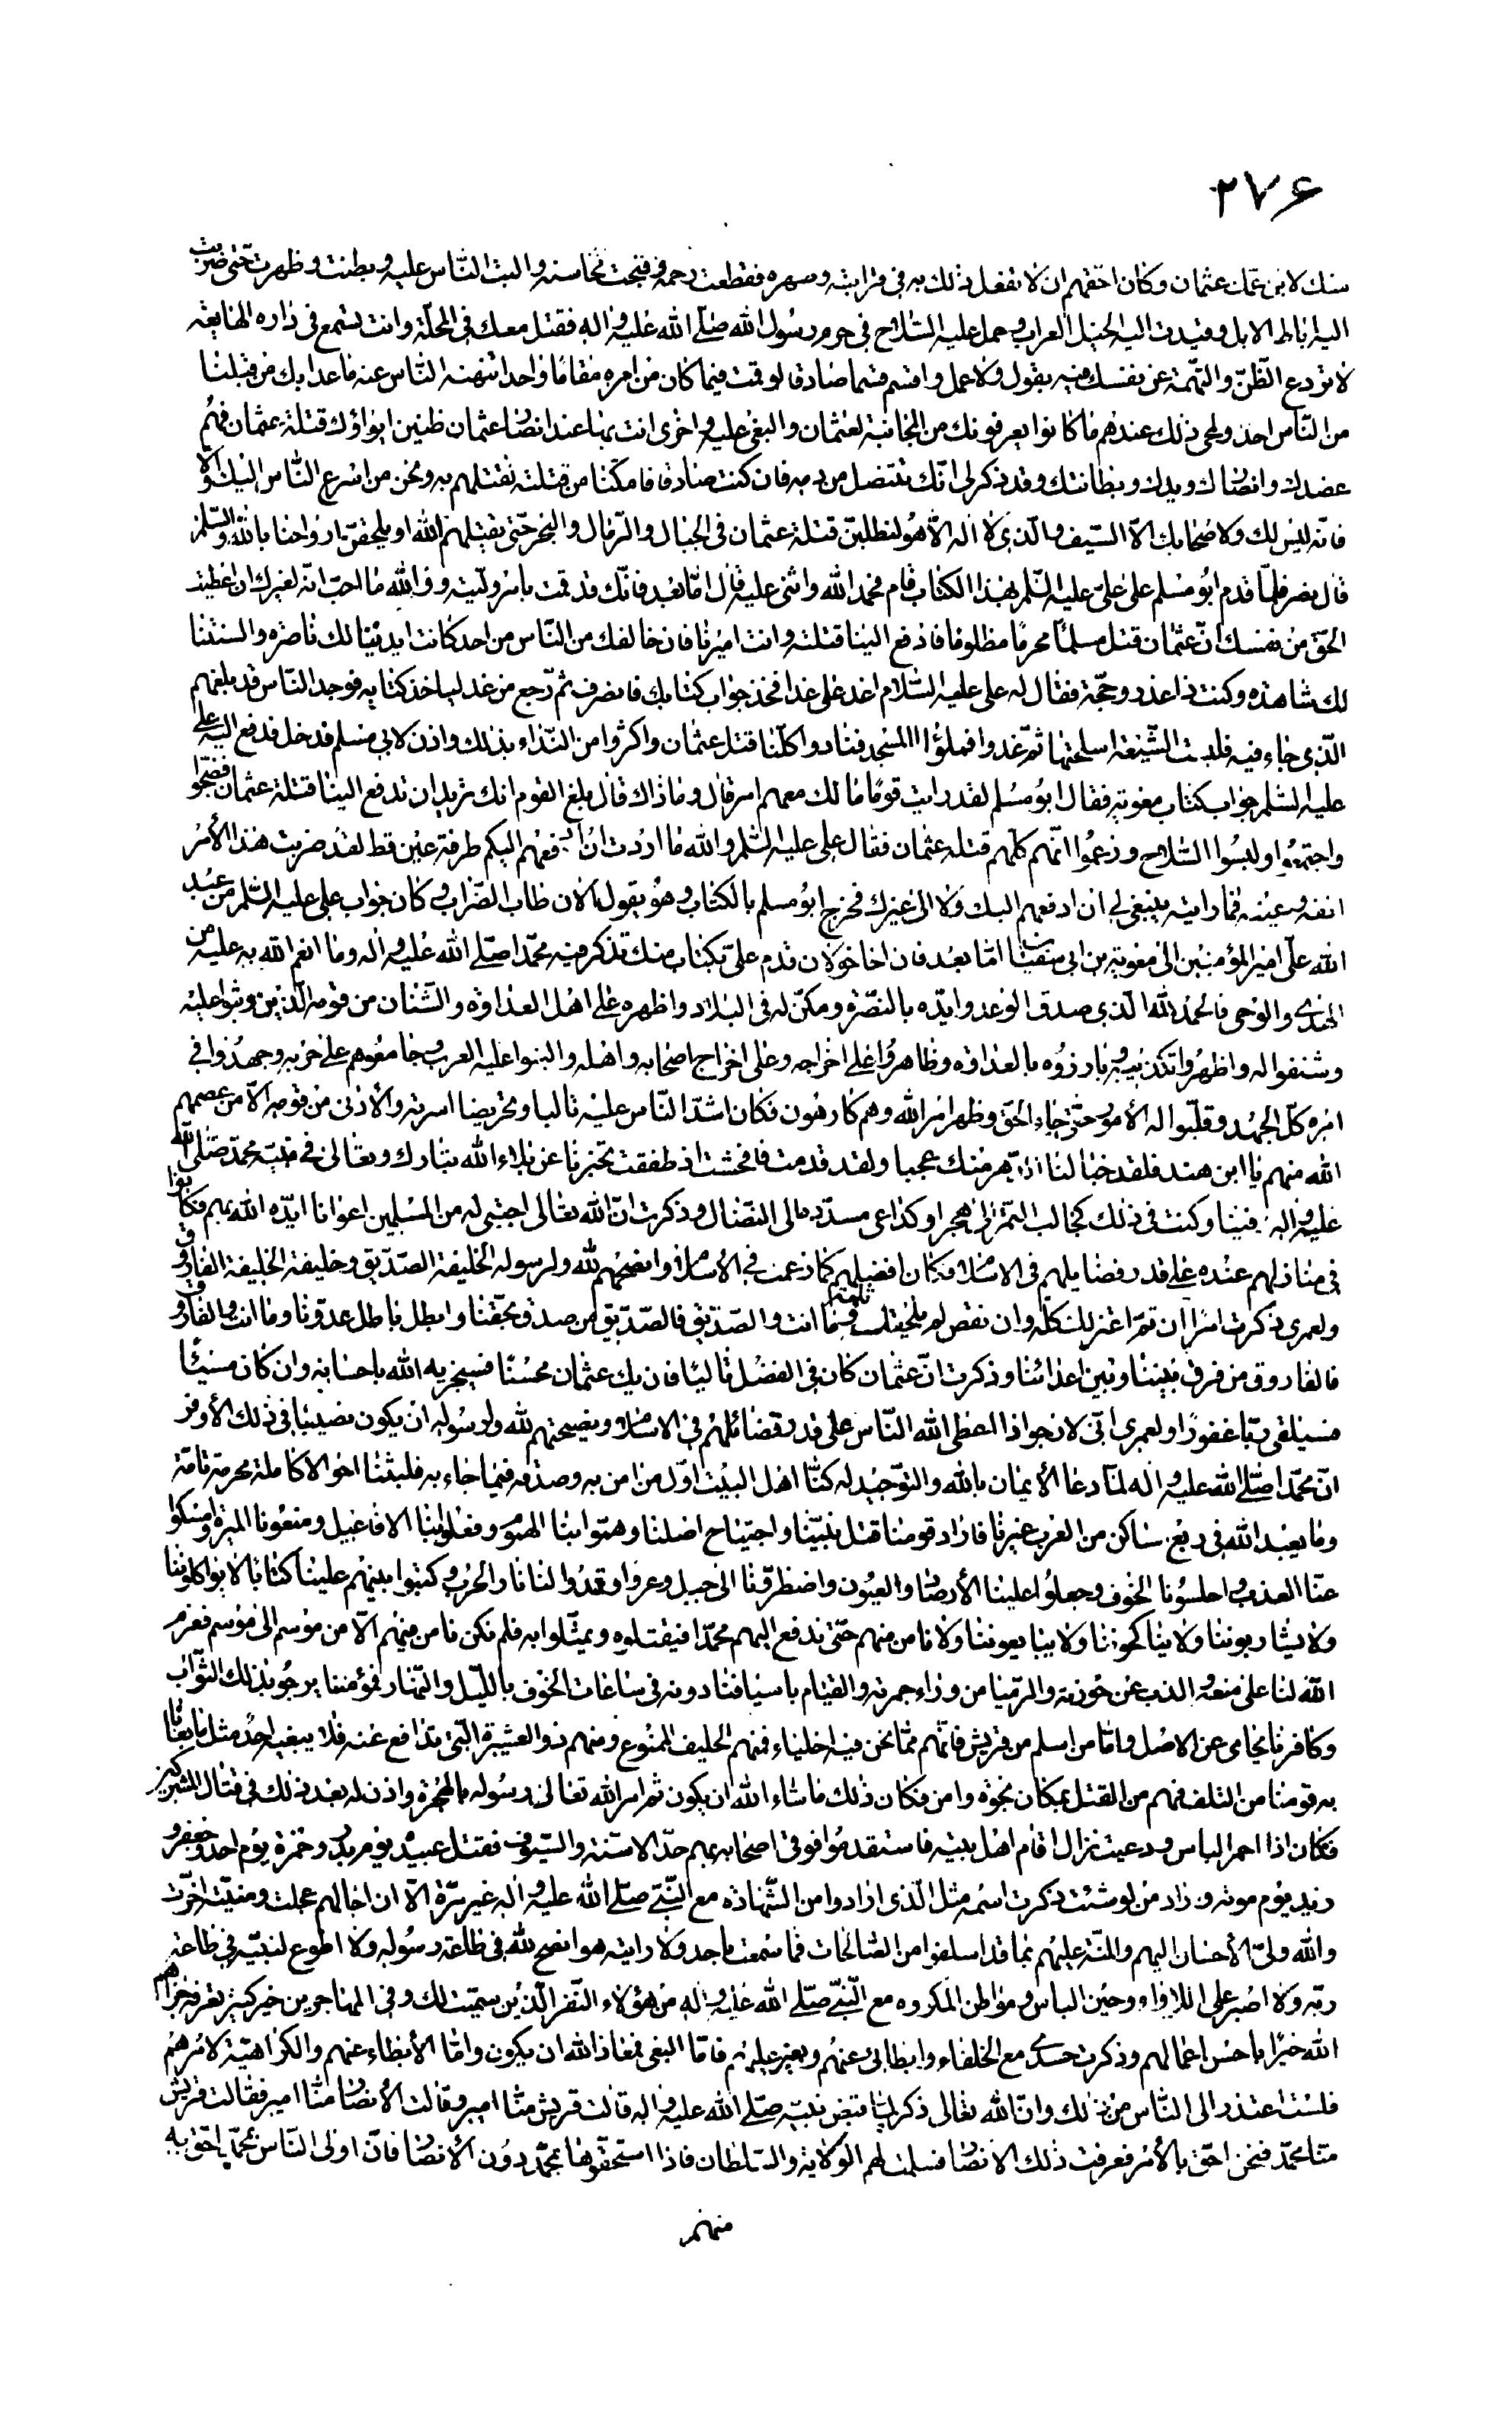 ۲۷۶
منك لابن عمك عثمان وكان احقهم ان لا تفعل ذلك به فى قرابته وصهره فقطعت رحمه وقبحت محاسنه والبت الناس عليه وبطنت وظهرت حتى ضربت
اليه اباط الابل وقيدت اليه الخيل العراب وحمل عليه السلاح فى حرم رسول الله صلى الله عليه واله فقتل معك فى المحلة وانت تسمع فى داره الهايعة
لا تردع الظن والتهمة عن نفسك فيه بقول ولا عمل واقسم قسما صادقا لو قمت فيما كان من امره مقاما واحدا تنهنه الناس عنه ما عدل بك من قبلنا
من الناس احد ولمحى ذلك عندهم ما كانوا يعرفونك من المجانبة لعثمان والبغى عليه واخرى انت بها عند انصار عثمان ظنين ايواؤك قتلة عثمان فهم
عضدك وانصارك ويدك وبطانتك وقد ذكر لى انك تتنصل من دمه فان كنت صادقا فامكنا من قتلته نقتلهم به ونحن من اسرع الناس اليك والا
فانه ليس لك ولاصحابك الا السيف والذى لا اله الا هو لنطلبن قتلة عثمان فى الجبال والرمال والبر والبحر حتى يقتلهم الله او يلحقن ارواحنا بالله والسلم
قال نصر فلما قدم ابو مسلم على على عليه السلم بهذا الكتاب قام فحمد الله واثنى عليه قال اما بعد فانك قد قمت بامر وليته ووالله ما احب انه لغيرك ان اعطيت
الحق من نفسك ان عثمان قتل مسلما محرما مظلوما فادفع الينا قتلته وانت اميرنا فان خالفك من الناس من احد كانت ايدينا لك ناصره والسنتنا
لك شاهده وكنت ذا عذر وحجة فقال له على عليه السلام اغد على غدا فخذ جواب كتابك فانصرف ثم رجع من غد لياخذ كتابه فوجد الناس قد بلغهم
الذى جاء فيه فلبست الشيعة اسلحتها ثم غدوا فملؤا المسجد فنادوا كلنا قتل عثمان واكثروا من النداء بذلك واذن لابى مسلم فدخل فدفع اليه على
عليه السلم جواب كتاب معوية فقال ابو مسلم لقد رايت قوما ما لك معهم امر قال وما ذاك قال بلغ القوم انك تريد ان تدفع الينا قتلة عثمان فضجوا
واجتمعوا ولبسوا السلاح وزعموا انهم كلهم قتلة عثمان فقال على عليه السلم والله ما اردت ان ادفعهم اليكم طرفة عين قط لقد ضربت هذا الأمر
انفه وعينه فما رايته ينبغى لى ان ادفعهم اليك ولا الى غيرك فخرج ابو مسلم بالكتاب وهو يقول الان طاب الضراب وكان جواب على عليه السلم من عبد
الله على امير المؤمنين الى معوية بن ابى سفيان اما بعد فان اخا خولان قدم على بكتاب منك تذكر فيه محمدا صلى الله عليه واله وما انعم الله به عليه من
الهدى والوحى فالحمد لله الذى صدق الوعد وايده بالنصرة ومكن له فى البلاد واظهره على اهل العداوة والشنان من قومه الذين وثبوا عليه
وشنفوا له واظهروا تكذيبه وبارزوه بالعداوة وظاهروا على اخراجه وعلى اخراج اصحابه واهله والبوا عليه العرب وجامعوهم على حربه وجهدوا فى
امره كل الجهد وقلبوا له الأمور حتى جاء الحق وظهر امر الله وهم كارهون فكان اشد الناس عليه تاليبا وتحريضا اسرته والأدنى من قومه الا من عصمهم
الله منهم يا ابن هند فلقد خبا لنا الدهر منك عجبا ولقد قدمت فافحشت اذ طفقت تخبرنا عن بلاء الله تبارك وتعالى فى نبيه محمد صلى الله
عليه واله وفينا وكنت فى ذلك كجالب التمر الى هجر او كداعى مسدده الى النضال وذكرت ان الله تعالى اجتبى له من المسلمين اعوانا ايده الله بهم فكانوا
فى منازلهم عنده على قدر فضايلهم فى الاسلام وكان افضلهم كما زعمت فى الأسلام وانصحهم لله ولرسوله الخليفة الصديق وخليفة الخليفة الفاروق
ولعمرى ذكرت امرا ان تم اعتزلك كله وان نقص لم يلحقك ثلمه وما انت والصديق فالصديق من صدق بحقنا وابطل باطل عدونا وما انت والفاروق
فالفاروق من فرق بيننا وبين اعدائنا وذكرت ان عثمان كان فى الفضل تاليا فان يك عثمان محسنا فسيجزيه الله باحسانه وان كان مسيئا
فسيلقى ربا غفورا ولعمرى انى لارجو اذا اعطى الله الناس على قدر فضائلهم فى الاسلام ونصيحتهم لله ولرسوله ان يكون نصيبنا فى ذلك الأوفر
ان محمدا صلى الله عليه واله لما دعا الأيمان بالله والتوحيد له كنا اهل البيت اول من امن به وصدقه فيما جاء به فلبثنا احوالا كاملة مجرمة تامة
وما يعبد الله فى ربع ساكن من العرب غيرنا فاراد قومنا قتل نبينا واجتياح اصلنا وهموا بنا الهموم وفعلوا بنا الافاعيل ومنعونا الميرة وامسكوا
عنا العذب واحلسونا الخوف وجعلوا علينا الأرصاد والعيون واضطرونا الى جبل وعر واوقدوا لنا نار الحرب وكتبوا بينهم علينا كتابا لا يواكلوننا
ولا يشاربوننا ولا يناكحوننا ولا يبايعوننا ولا نامن منهم حتى ندفع اليهم محمدا فيقتلوه ويمثلوا به فلم نكن نامن منهم الا من موسم الى موسم فعزم
الله لنا على منعه والذب عن حوزته والرميا من وراء حرمته والقيام باسيافنا دونه فى ساعات الخوف بالليل والنهار فمؤمننا يرجو بذلك الثواب
وكافرنا يحامى عن الاصل واما من اسلم من قريش فانهم مما نحن فيه اخلياء فمنهم الحليف الممنوع ومنهم ذو العشيرة التى تدافع عنه فلا يبغيه احد مثل ما بغانا
به قومنا من التلف فهم من القتل بمكان نجوة وامن فكان ذلك ما شاء الله ان يكون ثم امر الله تعالى رسوله بالهجرة واذن له بعد ذلك فى قتال المشركين
فكان اذا احمر الباس ودعيت نزال اقام اهل بيته فاستقدموا فوقى اصحابه بهم حد الاسنة والسيوف فقتل عبيدة يوم بدر وحمزة يوم احد وجعفر و
زيد يوم موته وزاد من لو شئت ذكرت اسمه مثل الذى ارادوا من الشهادة مع النبى صلى الله عليه واله غير مرة الا ان اجالهم عجلت ومنيته اخرت
والله ولى الأحسان اليهم والمنة عليهم بما قد اسلفوا من الصالحات فما سمعت باحد ولا رايته هو انصح لله فى طاعة رسوله ولا اطوع لنبيه فى طاعة
ربه ولا اصبر على اللاواء وحين الباس ومواطن المكروه مع النبى صلى الله عليه واله من هؤلاء النفر الذين سميت لك وفى المهاجرين خير كثير يعرف جزاهم
الله خيرا باحسن اعمالهم وذكرت حسدى مع الخلفاء وابطائى عنهم وبغيى عليهم فاما البغى فمعاذ الله ان يكون واما الأبطاء عنهم والكراهية لامرهم
فلست اعتذر الى الناس من ذلك وان الله تعالى ذكره لما قبض نبيه صلى الله عليه واله قالت قريش منا امير وقالت الأنصار منا امير فقالت قريش
منا محمد فنحن احق بالأمر فعرفت ذلك الانصار فسلمت لهم الولاية والسلطان فاذا استحقوها بمحمد دون الأنصار فان اولى الناس بمحمد احق به
منهم